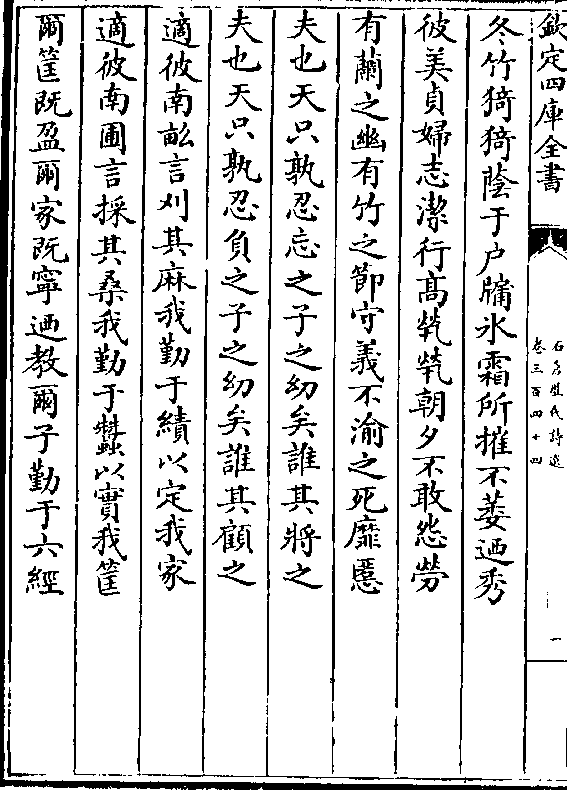 欽定四庫全書
石倉歴代詩選
卷三百四十四
一
冬竹猗猗蔭于户牖氷霜所摧不萎迺秀
彼美貞婦志潔行髙煢煢朝夕不敢怨勞
有蘭之幽有竹之節守義不渝之死靡慝
夫也天只孰忍忘之子之幼矣誰其將之
夫也天只孰忍負之子之幼矣誰其顧之
適彼南畝言刈其麻我勤于績以定我家
適彼南圃言採其桑我勤于蠶以實我筐
爾筐既盈爾家既寧迺教爾子勤于六經